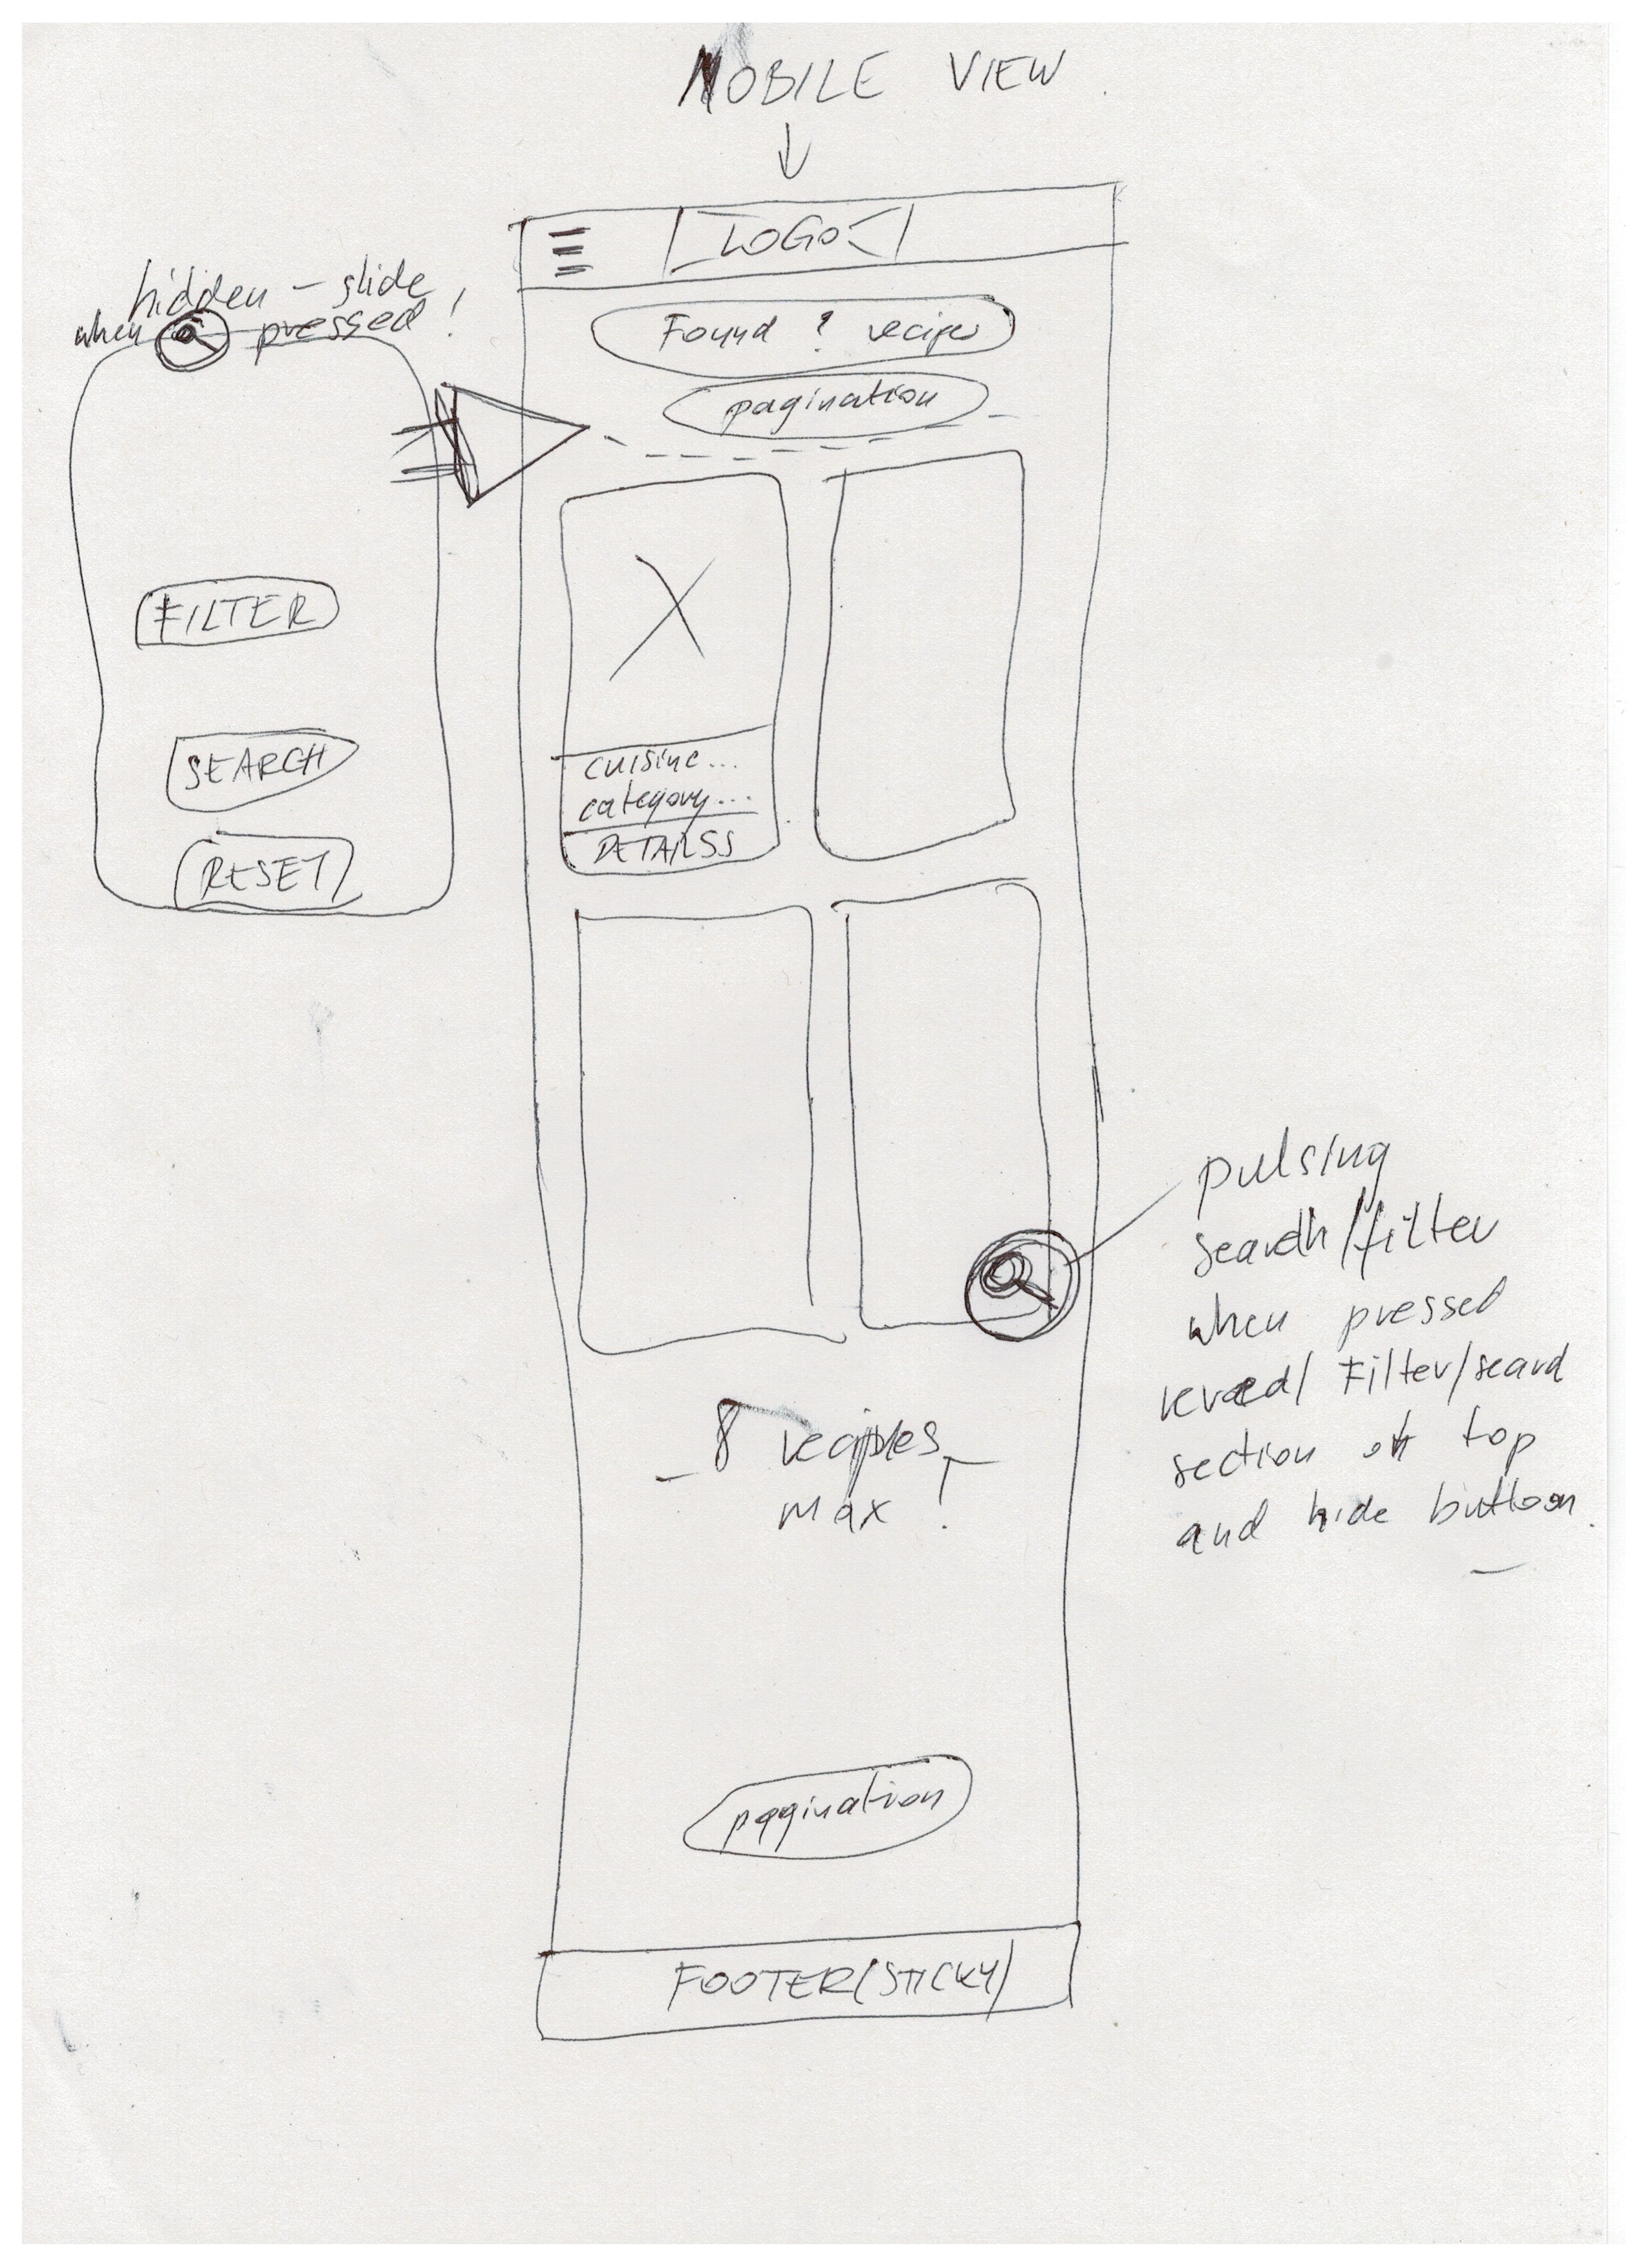 MOBILE VIEW
LOGO
hidden - slide
when pressed!
Found ? recipes
pagination
FILTER
SEARCH
RESET
cuisine...
category...
DETAILSS
pulsing
search/filter
when pressed
reveal/ Filter/search
section on top
and hide button.
- 8 recipes -
max !
pagination
FOOTER(STICKY)